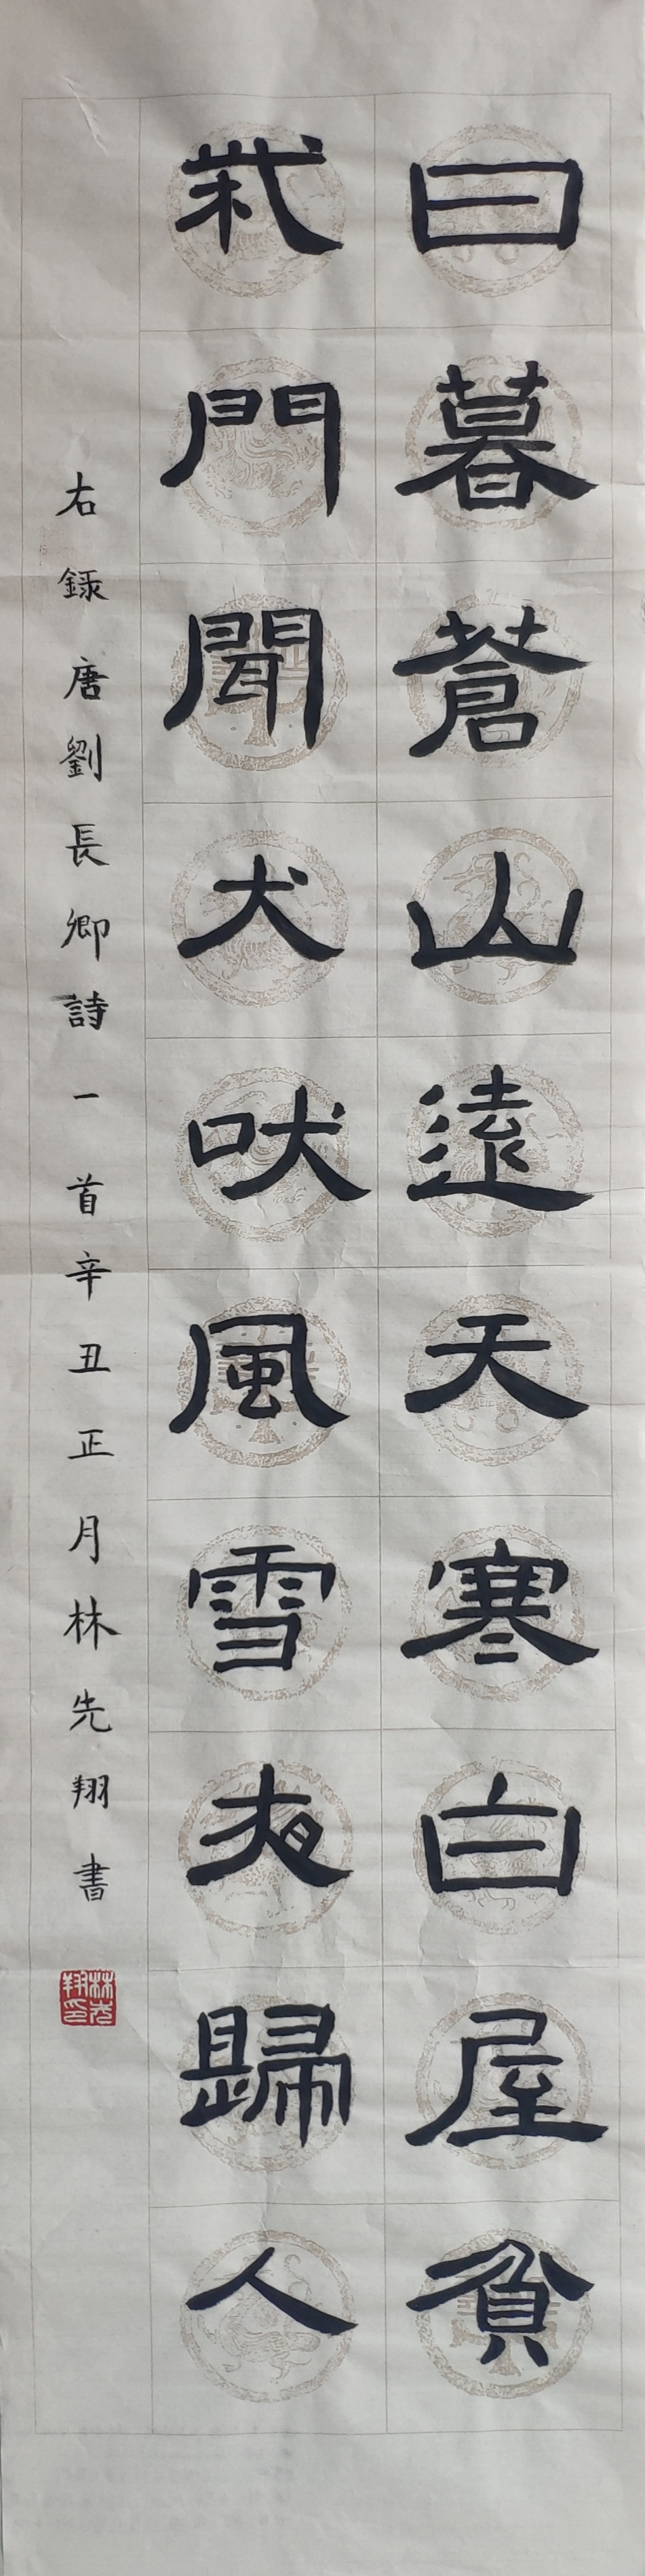 日暮蒼山遠天寒白屋貧
柴門聞犬吠風雪夜歸人
右録唐劉長卿詩一首辛丑正月林先翔書
林先翔印